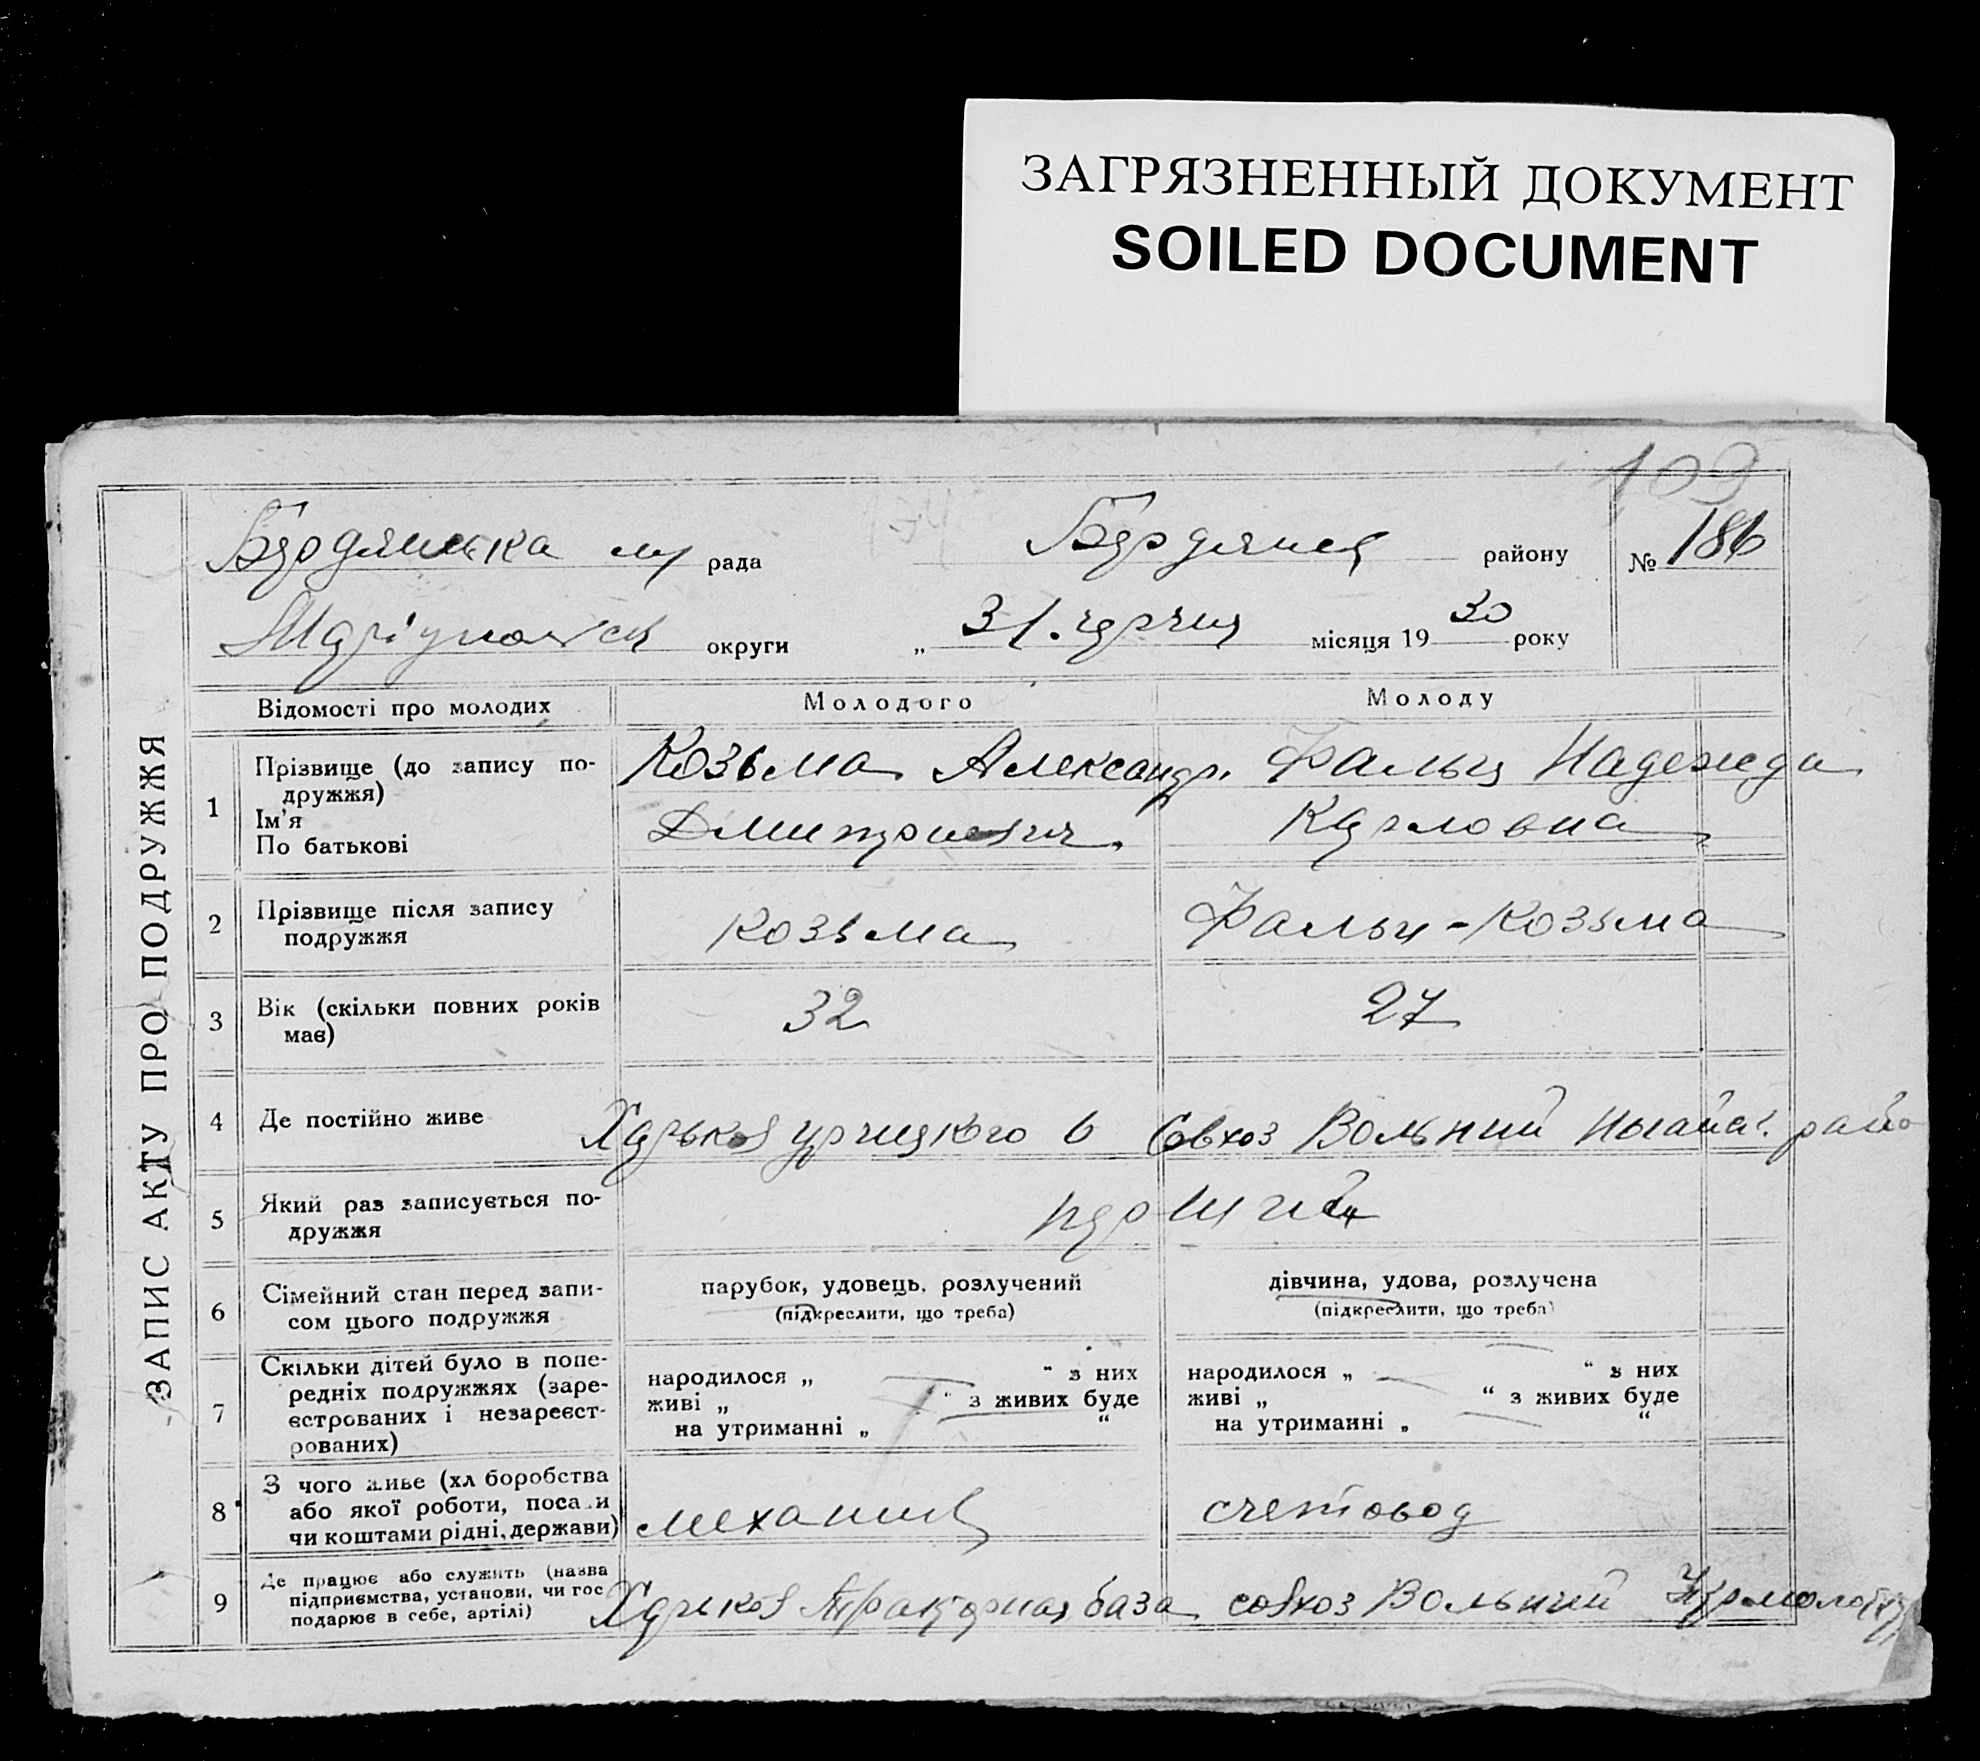 ЗАГРЯЗНЕННЫЙ ДОКУМЕНТ
SOILED DOCUMENT
109
Бердянська рада Бердянськ району № 186
Маріупольск округи „ 31. місяця 1930 року
ЗАПИС АКТУ ПРО ПОДРУЖЖЯ
Відомості про молодих Молодого Молоду
1 Прізвище (до запису по-
дружжя)
Ім'я
По батькові
Козьма Александр. Фальц Надежда
Дмитриевич. Карловна
2 Прізвище після запису
подружжя
Козьма Фальц-Козьма
3 Вік (скільки повних років
має)
32 27
4 Де постійно живе Харьков 6 Совхоз Вольний
5 Який раз записується по-
дружжя
перший
6 Сімейний стан перед запи-
сом цього подружжя
парубок, удовець, розлучений
(підкреслити, що треба)
дівчина, удова, розлучена
(підкреслити, що треба)
7 Скільки дітей було в попе-
редніх подружжях (заре-
єстрованих і незареєст-
рованих)
народилося „ “ з них
живі „ “ з живих буде
на утриманні „ “
народилося „ “ з них
живі „ “ з живих буде
на утриманні „ “
8 З чого живе (хліборобства
або якої роботи, посади
чи коштами рідні, держави)
механик счетовод
9 Де працює або служить (назва
підприємства, установи, чи гос
подарює в себе, артілі)
Харьков Тракторная база совхоз Вольний